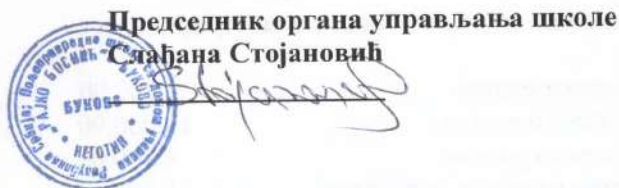 Председник органа управљања школе
Слађана Стојановић
Република Србија; Пољопривредна школа са домом ученика
"РАЈКО БОСНИЋ" БУКОВО
БУКОВО
НЕГОТИН